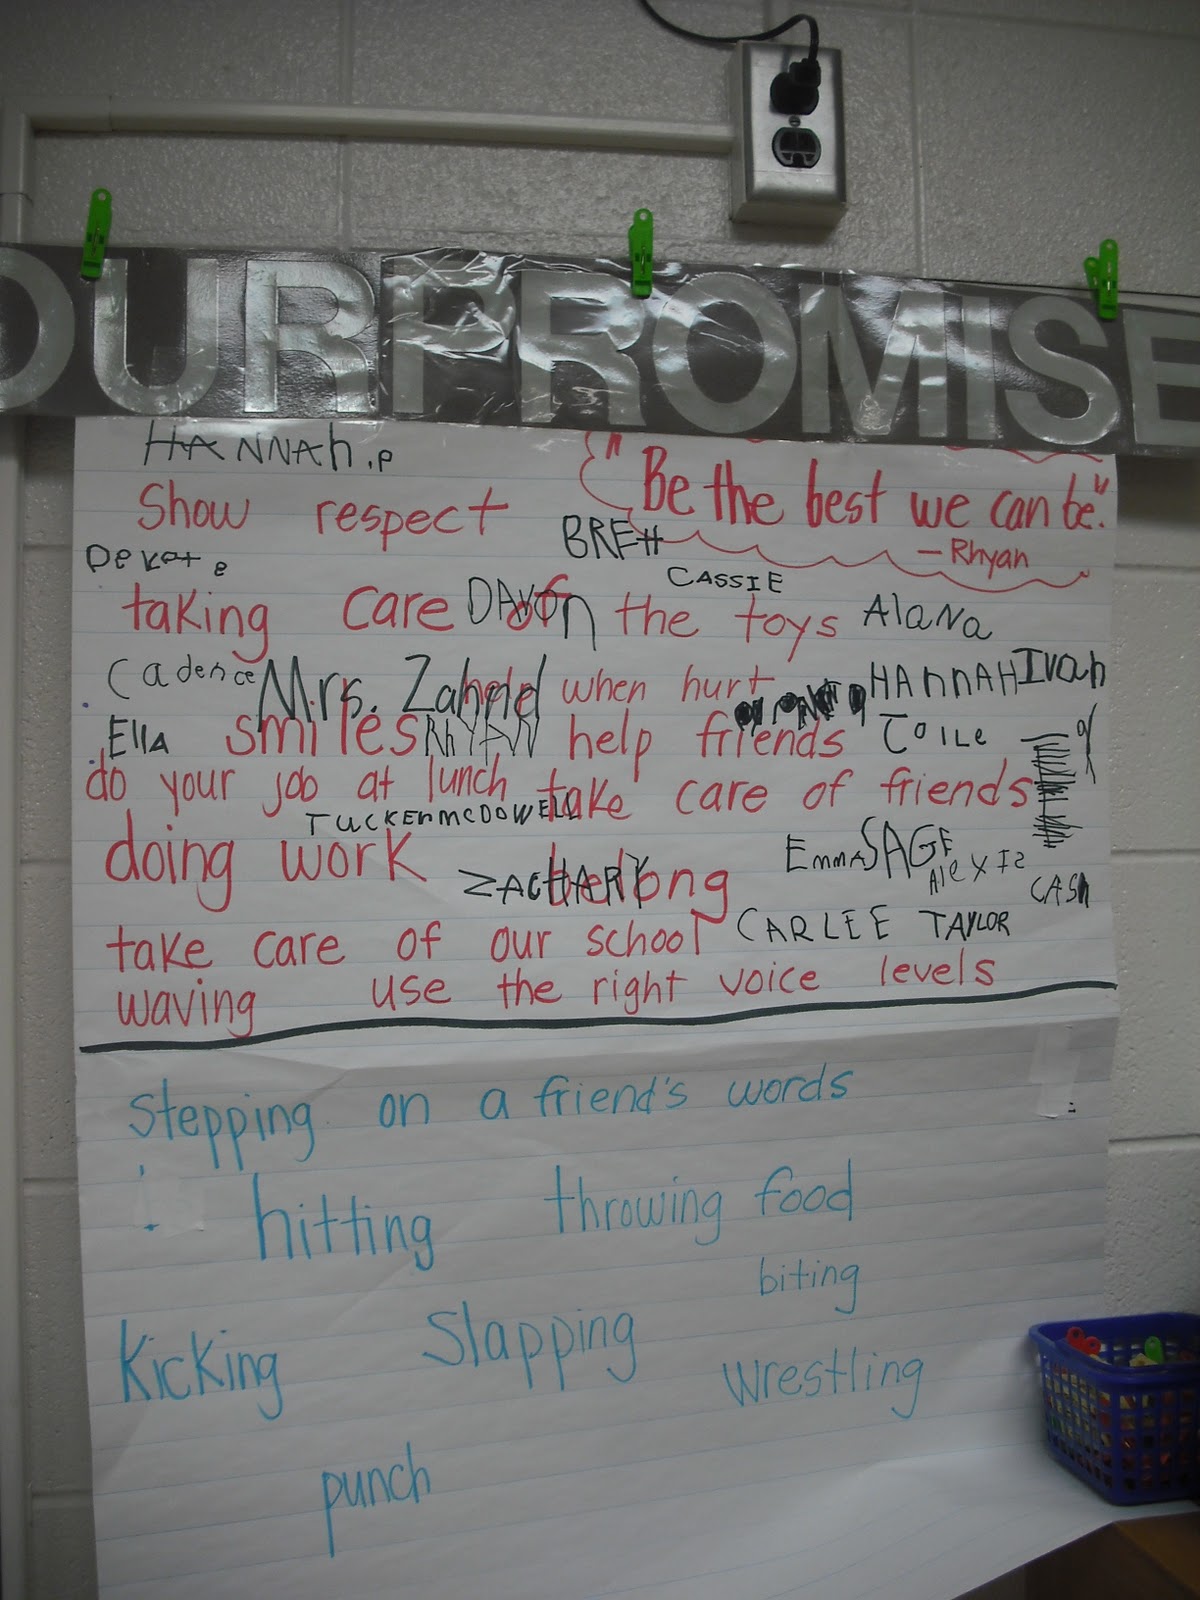 OUR PROMISE
HANNAh.p
"Be the best we can be."
Show respect
BREtt
-Rhyan
CASSIE
taking care of the toys
DAVOn
AlaNa
Cadence
Mrs. Zahnd
help when hurt
HAnnAH
Ivan
Ella
smiles
RhYAN
help friends
do your job at lunch
take care of friends
TuckEr mcDOWELL
doing work
ZACHARY
belong
EmmA
SAGE
AleXIs
CASh
take care of our school
CARLEE
TAYLOR
waving
use the right voice levels
stepping on a friend's words
hitting
throwing food
biting
Kicking
Slapping
wrestling
punch